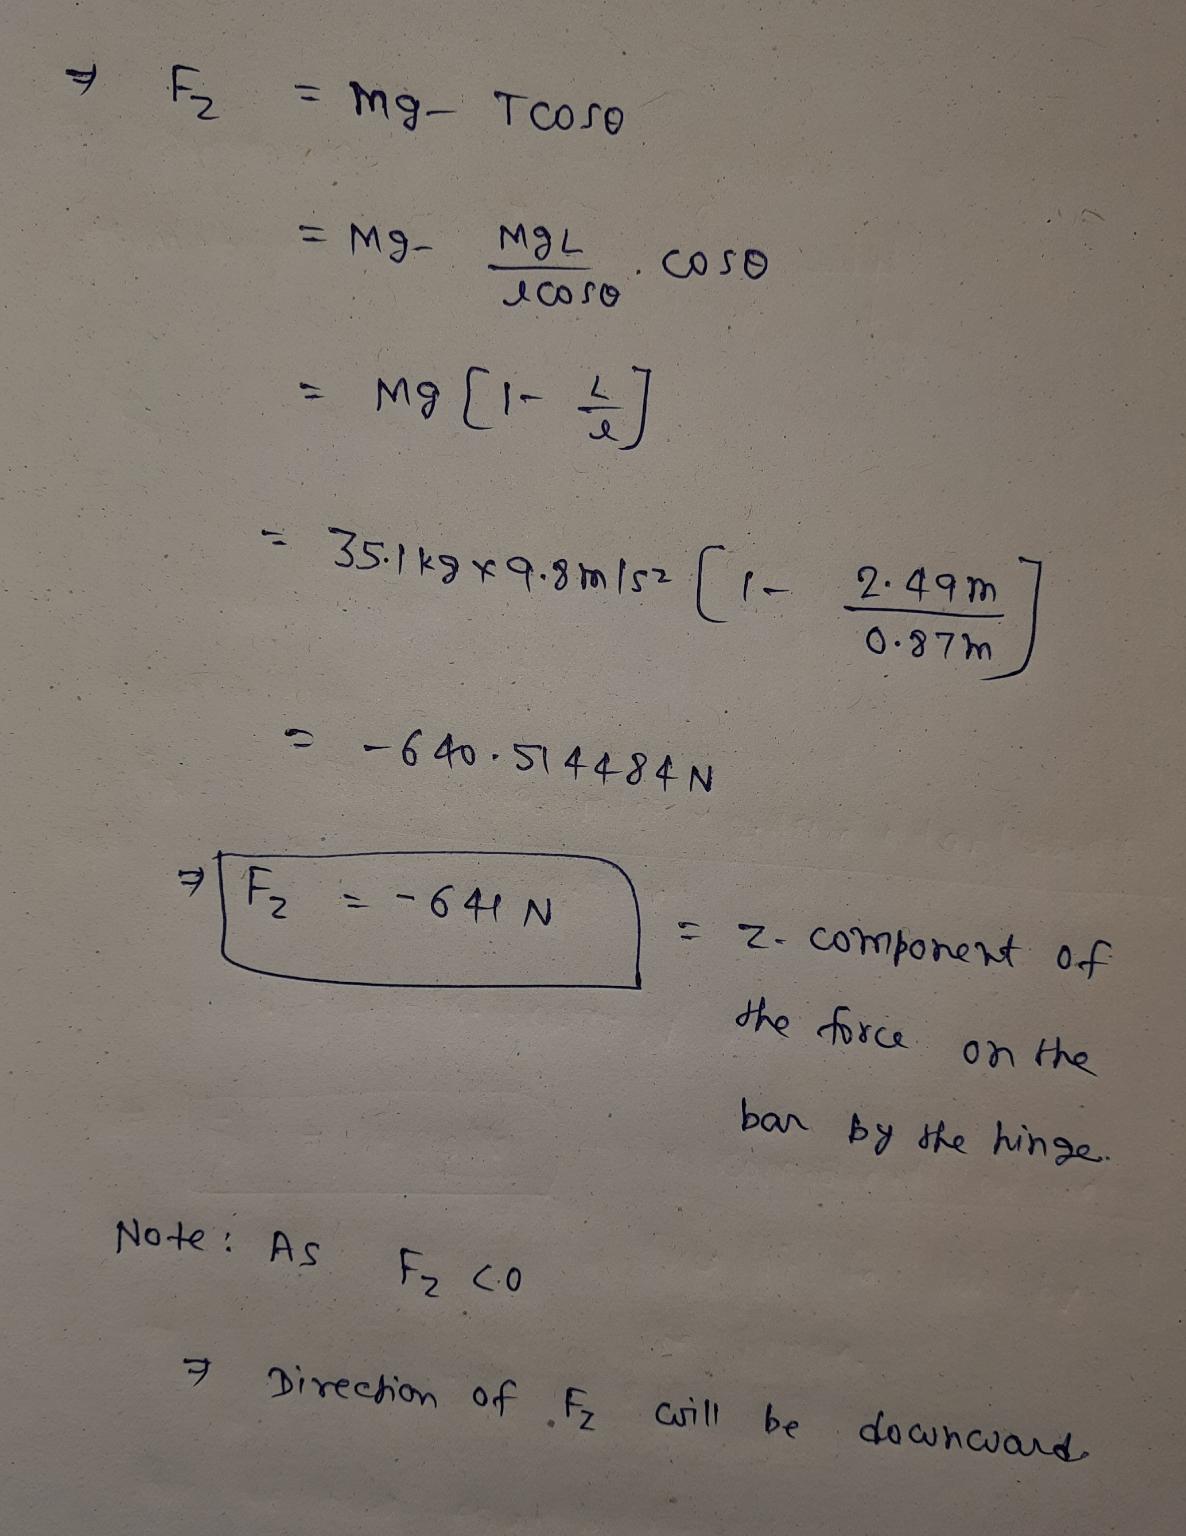 ⇒ Fz = Mg - Tcosθ
= Mg - MgL/lcosθ . cosθ
= Mg [1 - L/l]
= 35.1kg x 9.8m/s² [1 - 2.49m/0.87m]
= -640.514484N
⇒ Fz = -641 N = z- component of
the force on the
bar by the hinge.
Note: As Fz <0
⇒ Direction of Fz will be downward.